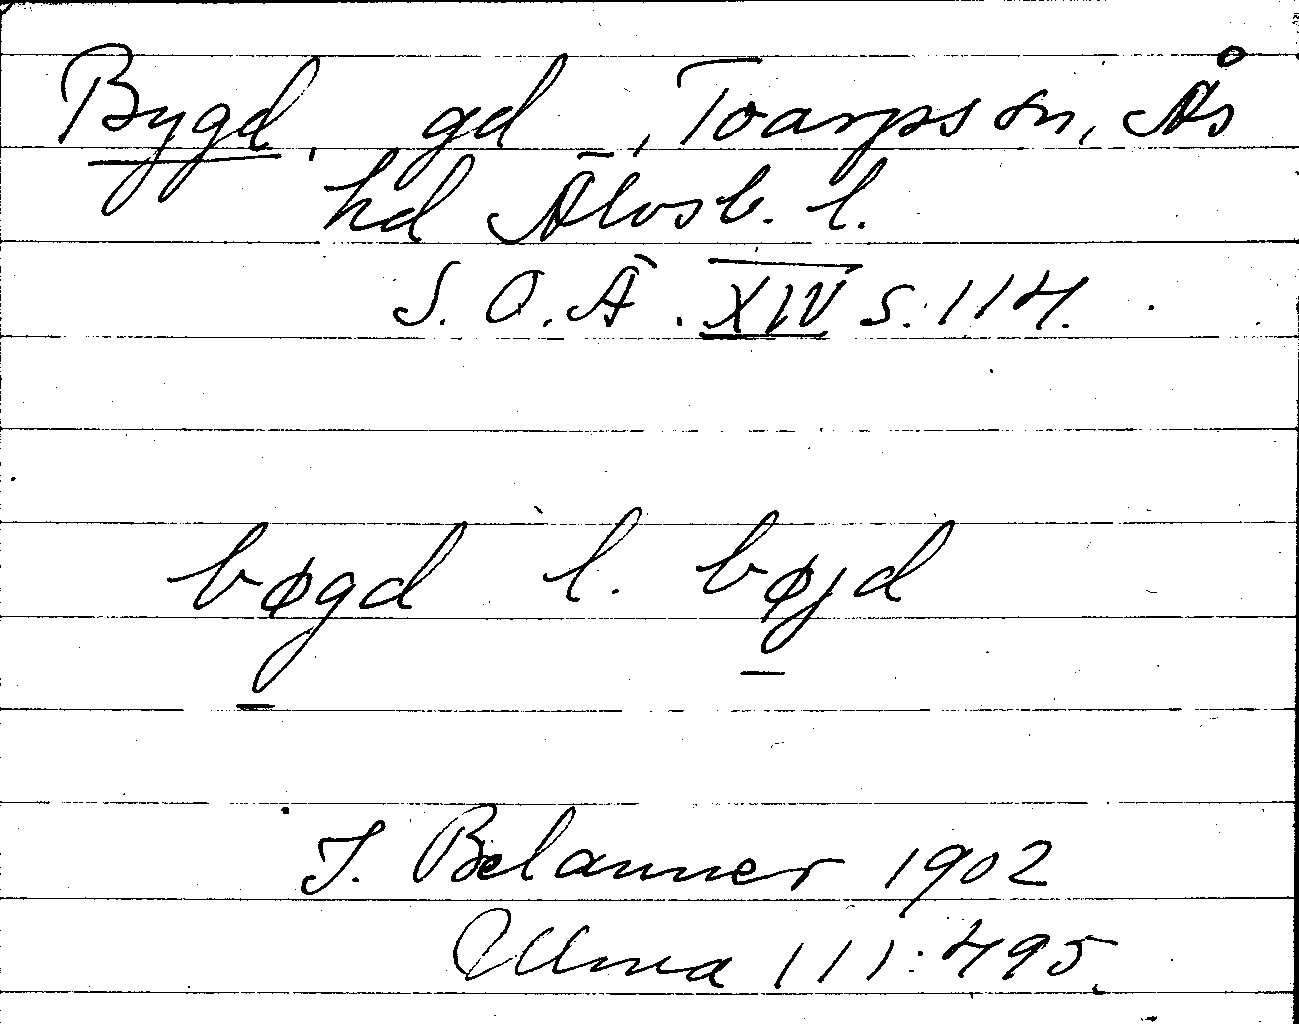 Bygd, gd, Toarps sn, Ås
hd Älvsb. l.
S. O. Ä. XIV s. 114.
bøgd l. bøjd
J. Belanner 1902
Ulma 111:495.